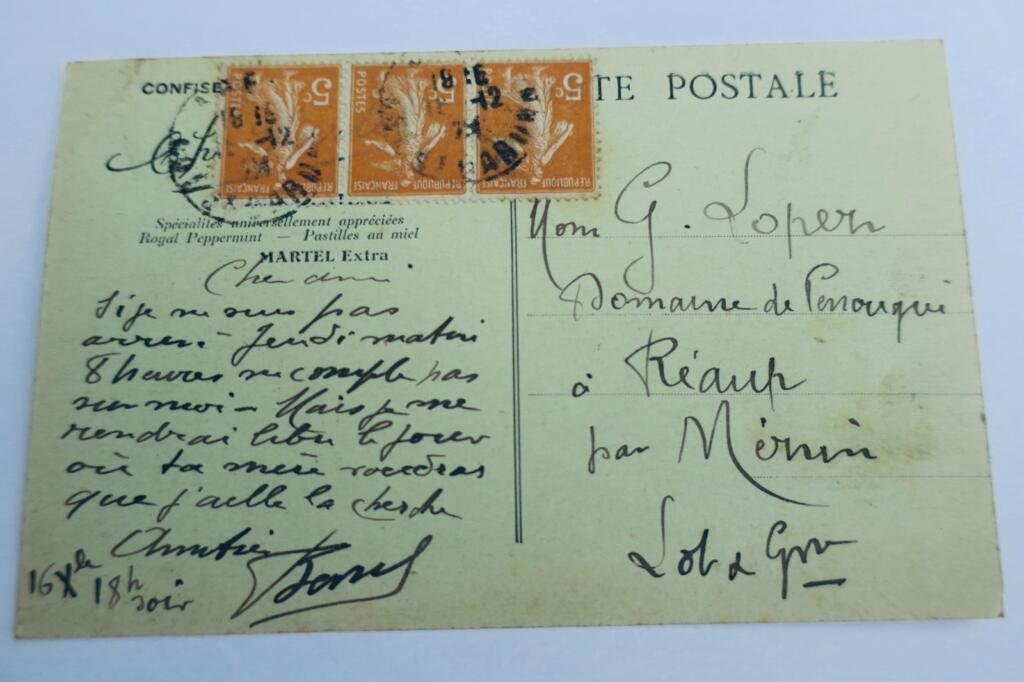 CONFISE
TE POSTALE
5c 5c 5c
POSTES
RÉPUBLIQUE FRANÇAISE
RÉPUBLIQUE FRANÇAISE
RÉPUBLIQUE FRANÇAISE
Spécialités universellement appréciées
Royal Peppermint — Pastilles au miel
MARTEL Extra
Cher ami
Si je ne suis pas
arrivé Jeudi matin
8 heures ne compte pas
sur moi — Mais je me
rendrai libre le jour
où ta mère voudras
que j'aille la cherche
16 Xbre 18h
soir
G. Loper
Domaine de
à Réaup
par Mézin
Lot & Gne